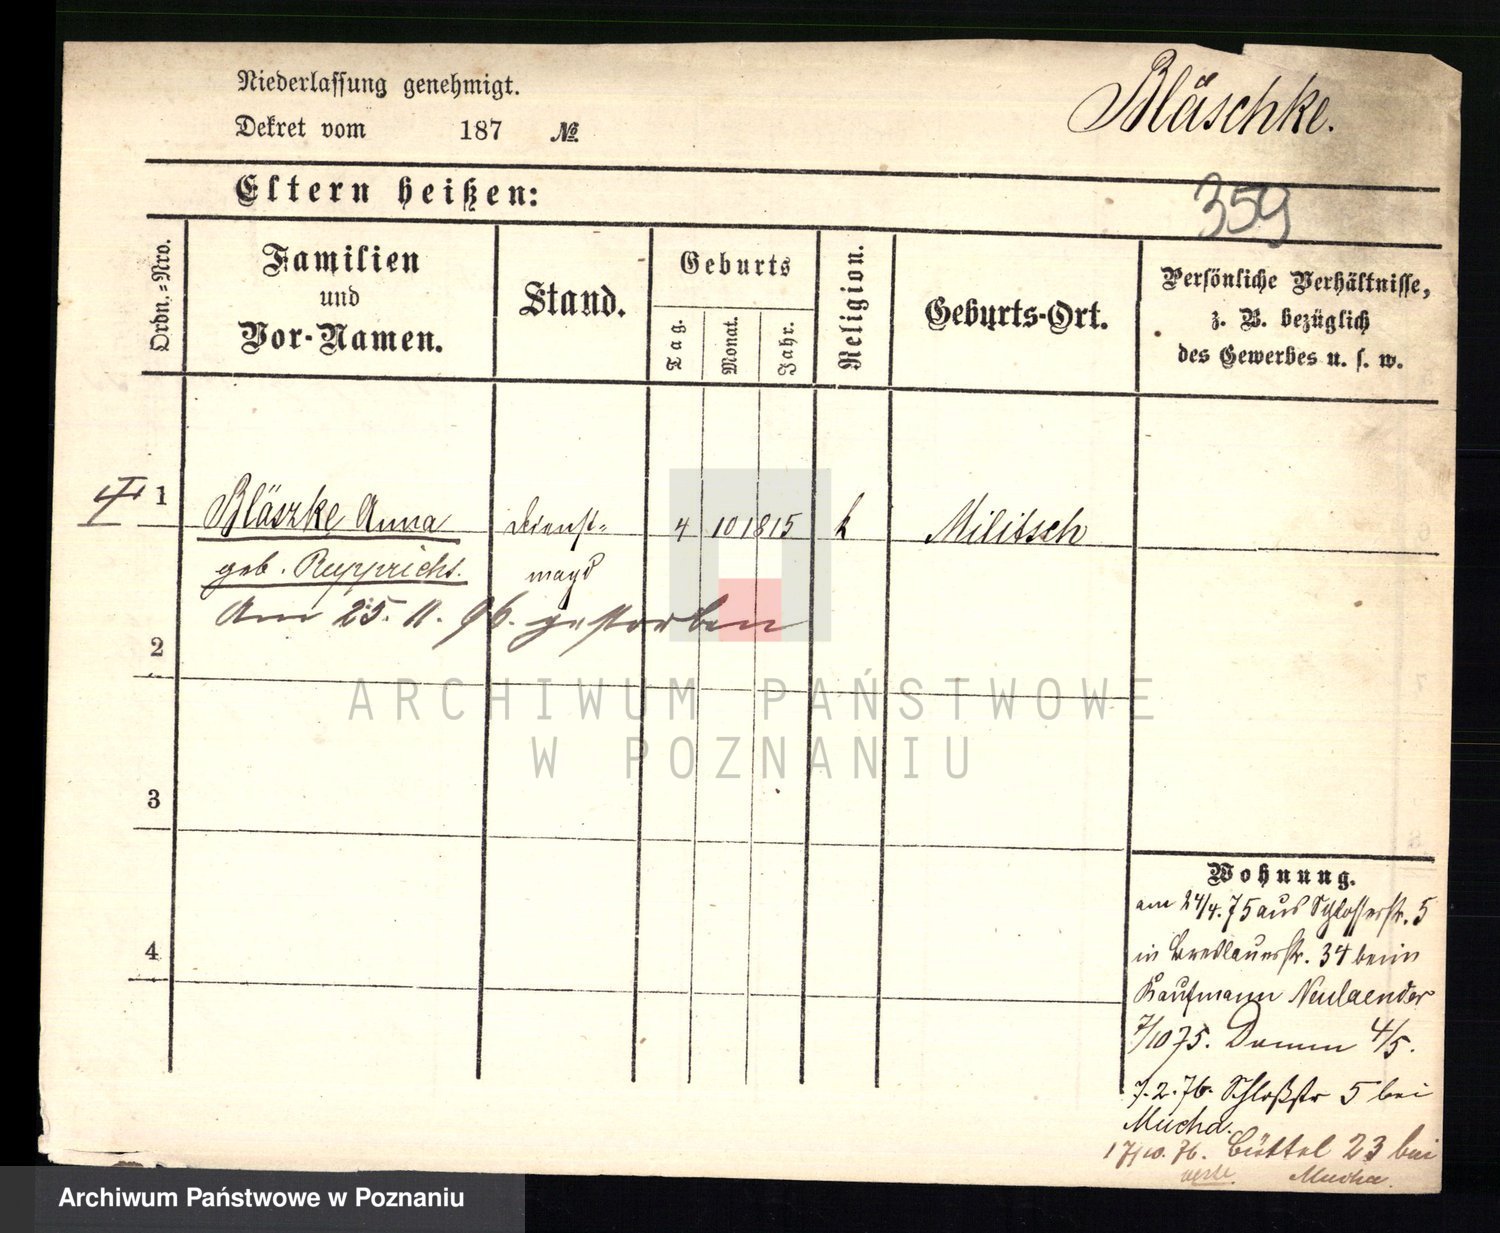 Niederlassung genehmigt.
Dekret vom 187 №
Bläschke.
Eltern heißen:
359
Ordn.=Nro.
Familien
und
Vor-Namen.
Stand.
Geburts
Tag.
Monat.
Jahr.
Religion.
Geburts-Ort.
Persönliche Verhältnisse,
z. B. bezüglich
des Gewerbes u. s. w.
1 Bläszke Anna Dienst= 4 10 1815 k Militsch
geb. Ruppricht. magd
Am 25. 11. 96. gestorben
2
3
4
Wohnung.
am 24/4. 75 aus Schlosserstr. 5
in Breslauerstr. 34 beim
Kaufmann Neulaender
7/10 75. Damm 4/5.
7. 2. 76. Schloßstr 5 bei
Mucha.
17/10. 76. Büttel 23 bei
Mucha.
ARCHIWUM PAŃSTWOWE
W POZNANIU
Archiwum Państwowe w Poznaniu